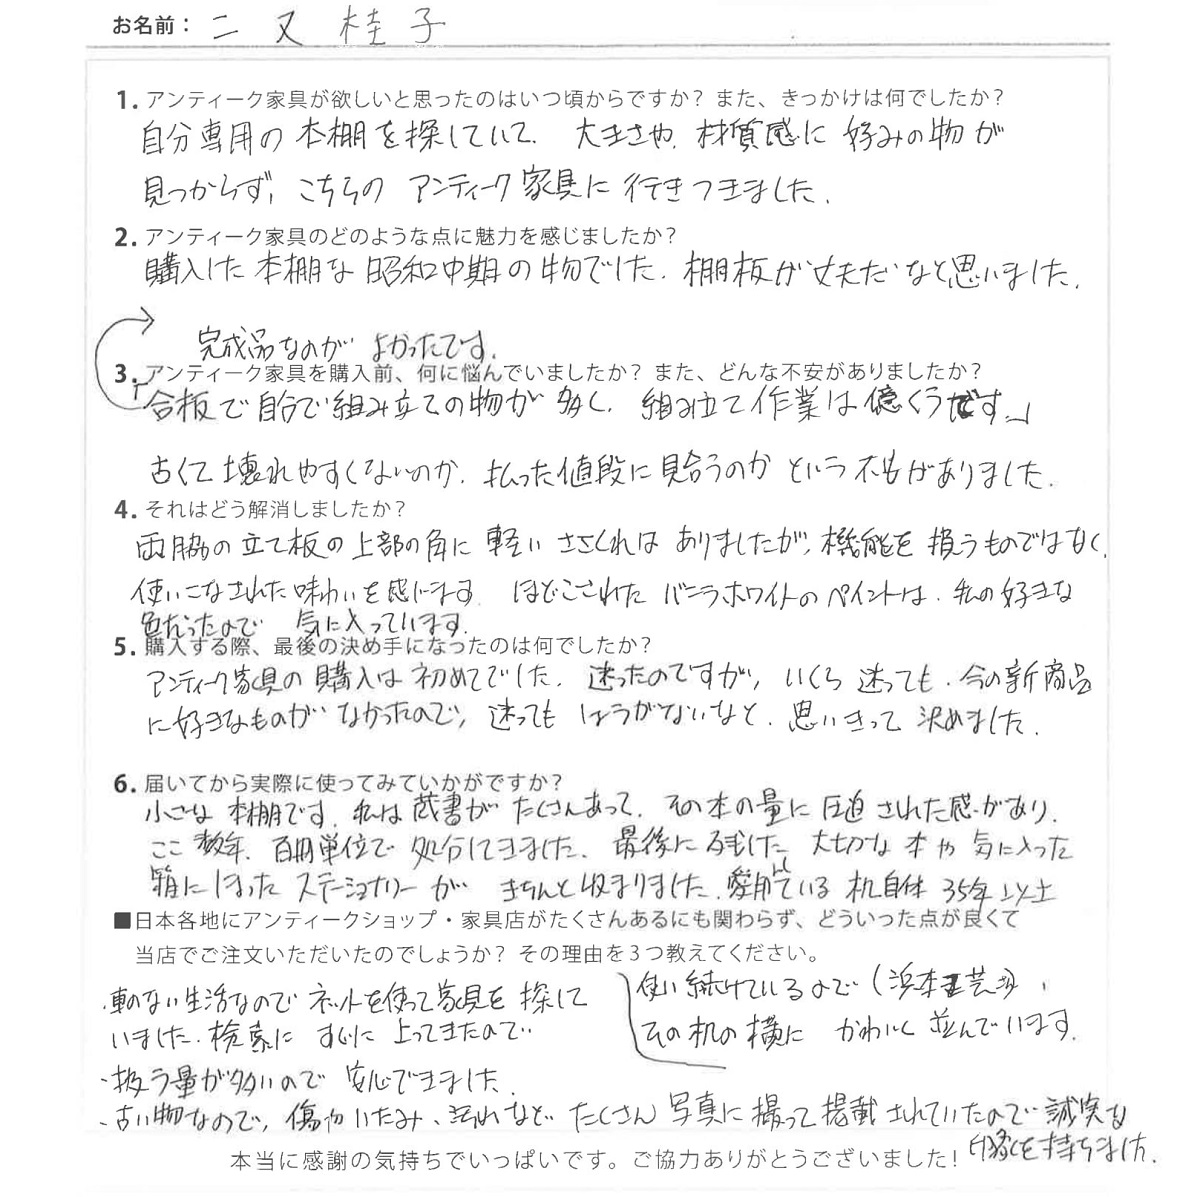 お名前： 二又桂子
1. アンティーク家具が欲しいと思ったのはいつ頃からですか？ また、きっかけは何でしたか？
自分専用の本棚を探していて、大きさや、材質感に好みの物が
見つからず、こちらのアンティーク家具に行きつきました。
2. アンティーク家具のどのような点に魅力を感じましたか？
購入した本棚な昭和中期の物でした。棚板が丈夫だなと思いました。
完成品なのがよかったです。
3. アンティーク家具を購入前、何に悩んでいましたか？ また、どんな不安がありましたか？
「合板で自分で組み立ての物が多く、組み立て作業は億くうです。」
古くて壊れやすくないのか、払った値段に見合うのかという不安がありました。
4. それはどう解消しましたか？
両脇の立て板の上部の角に軽いささくれはありましたが、機能を損うものではなく、
使いこなされた味わいを感じます。ほどこされたバニラホワイトのペイントは、私の好きな
色だったので気に入っています。
5. 購入する際、最後の決め手になったのは何でしたか？
アンティーク家具の購入は初めてでした。迷ったのですが、いくら迷っても、今の新商品
に好きなものがなかったので、迷ってもしょうがないなと、思いきって決めました。
6. 届いてから実際に使ってみていかがですか？
小さな本棚です。私は蔵書がたくさんあって、その本の量に圧迫された感があり、
ここ数年、百冊単位で処分してきました。最後に残した大切な本や気に入った
箱にしまったステーショナリーがきちんと収まりました。愛用している机自体35年以上
使い続けているので（浜本工芸）、
その机の横にかわいく並んでいます。
■日本各地にアンティークショップ・家具店がたくさんあるにも関わらず、どういった点が良くて
当店でご注文いただいたのでしょうか？ その理由を３つ教えてください。
・車のない生活なのでネットを使って家具を探して
いました。検索にすぐに上ってきたので
・扱う量が多いので安心できました。
・古い物なので、傷やいたみ、汚れなどたくさん写真に撮って掲載されていたので誠実な
印象を持ちました。
本当に感謝の気持ちでいっぱいです。ご協力ありがとうございました！